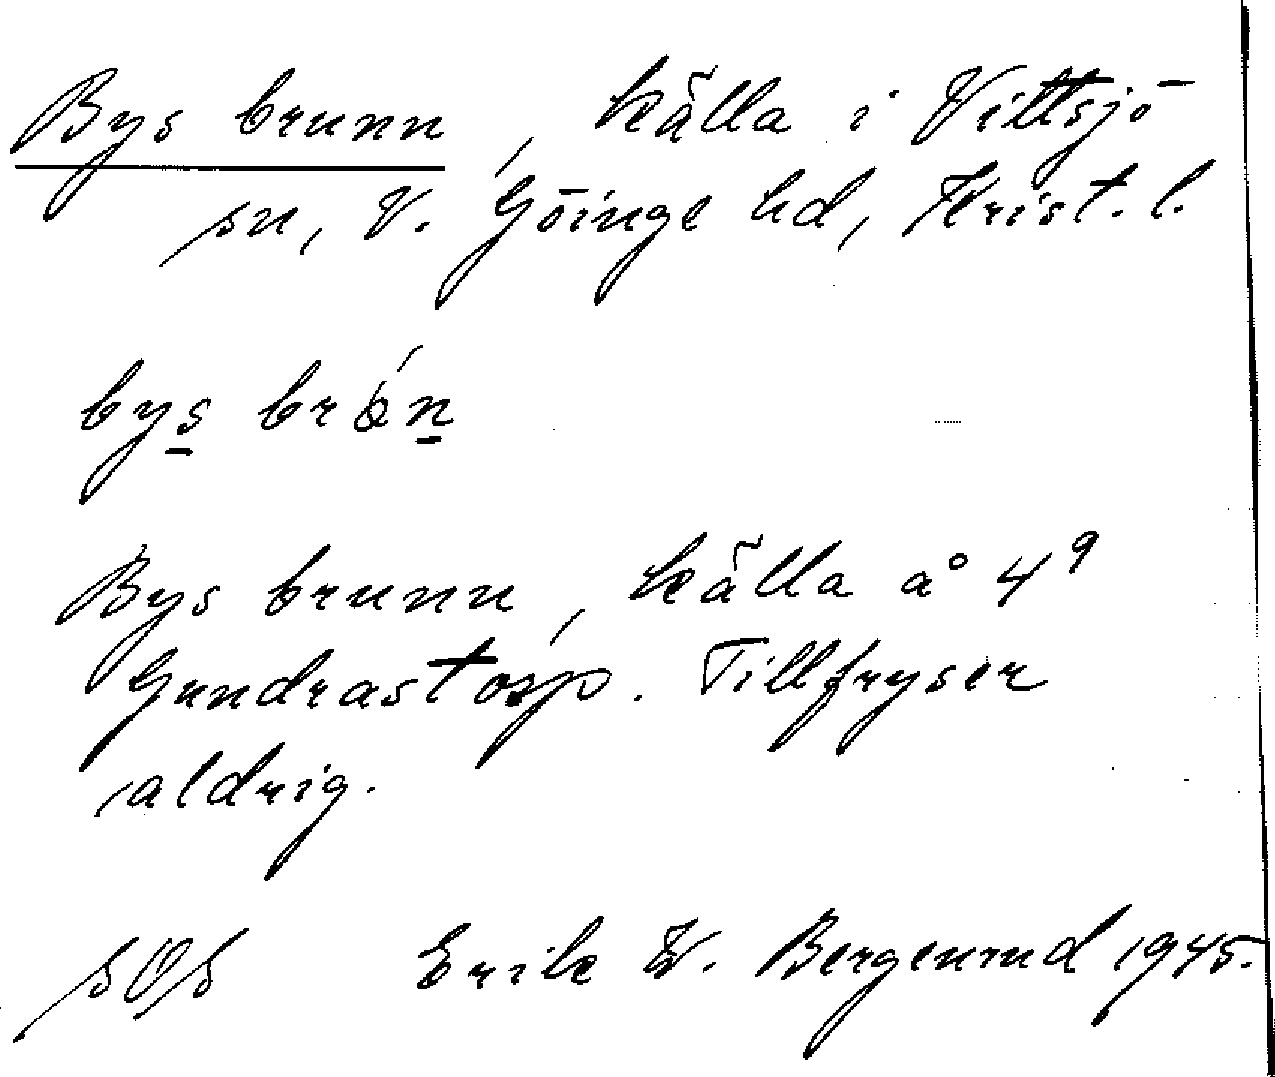 Bys brunn, källa i Vittsjö
sn, V. Göinge hd, Krist. l.
bys brón
Bys brunn, källa å 4⁹
Gundrastorp. Tillfryser
aldrig.
SOS Erik W. Bergenrud 1945.